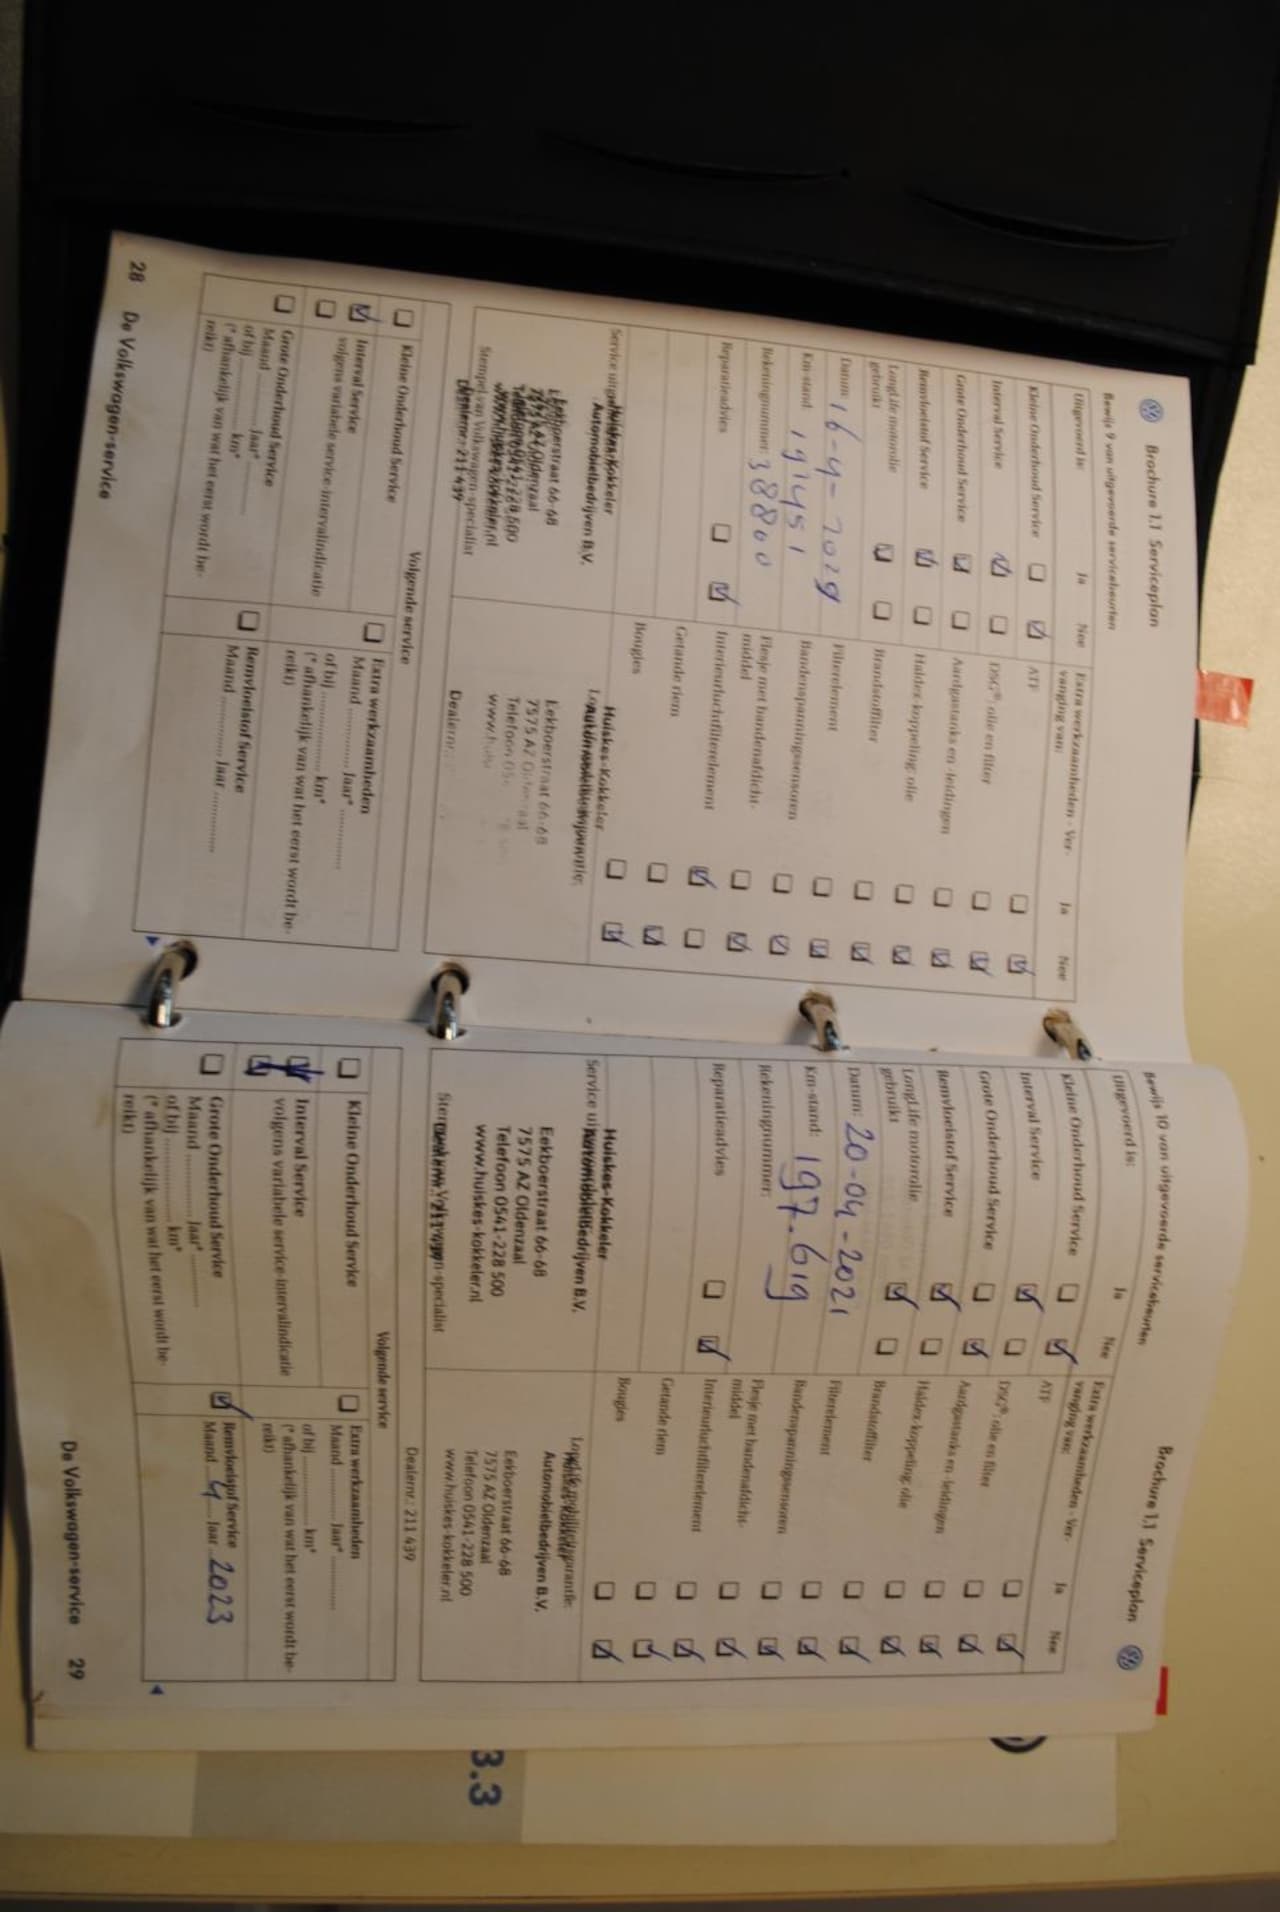 Brochure 1.1 Serviceplan
Bewijs 9 van uitgevoerde servicebeurten
Uitgevoerd is: Ja Nee
Kleine Onderhoud Service
Interval Service
Grote Onderhoud Service
Remvloeistof Service
LongLife motorolie
gebruikt
Datum: 16-4-2029
Km-stand: 191451
Rekeningnummer: 38800
Reparatieadvies
Service
Huiskes-Kokkeler
Automobielbedrijven B.V.
Eekboerstraat 66-68
7575 AZ Oldenzaal
Telefoon 0541-228 500
www.huiskes-kokkeler.nl
Stempel van Volkswagen-specialist
Dealernr.: 211 439
Extra werkzaamheden - Ver-
vanging van: Ja Nee
ATF
DSG®: olie en filter
Aardgastanks en -leidingen
Haldex-koppeling: olie
Brandstoffilter
Filterelement
Bandenspanningssensoren
Flesje met bandenafdicht-
middel
Interieurluchtfilterelement
Getande riem
Bougies
Huiskes-Kokkeler
Eekboerstraat 66-68
7575 AZ
Telefoon
www.
Dealernr.
Volgende service
Kleine Onderhoud Service
Interval Service
volgens variabele service-intervalindicatie
Grote Onderhoud Service
Maand ............ Jaar* ............
of bij ............ km*
(* afhankelijk van wat het eerst wordt be-
reikt)
Extra werkzaamheden
Maand ............ Jaar* ............
of bij ............ km*
(* afhankelijk van wat het eerst wordt be-
reikt)
Remvloeistof Service
Maand ............ Jaar ............
28 De Volkswagen-service
Brochure 1.1 Serviceplan
Bewijs 10 van uitgevoerde servicebeurten
Uitgevoerd is: Ja Nee
Kleine Onderhoud Service
Interval Service
Grote Onderhoud Service
Remvloeistof Service
LongLife motorolie
gebruikt
Datum: 20-04-2021
Km-stand: 197.619
Rekeningnummer:
Reparatieadvies
Service
Huiskes-Kokkeler
Automobielbedrijven B.V.
Eekboerstraat 66-68
7575 AZ Oldenzaal
Telefoon 0541-228 500
www.huiskes-kokkeler.nl
Stempel van Volkswagen-specialist
Dealernr.: 211 439
Extra werkzaamheden - Ver-
vanging van: Ja Nee
ATF
DSG®: olie en filter
Aardgastanks en -leidingen
Haldex-koppeling: olie
Brandstoffilter
Filterelement
Bandenspanningssensoren
Flesje met bandenafdicht-
middel
Interieurluchtfilterelement
Getande riem
Bougies
Huiskes-Kokkeler
Automobielbedrijven B.V.
Eekboerstraat 66-68
7575 AZ Oldenzaal
Telefoon 0541-228 500
www.huiskes-kokkeler.nl
Dealernr.: 211 439
Volgende service
Kleine Onderhoud Service
Interval Service
volgens variabele service-intervalindicatie
Grote Onderhoud Service
Maand ............ Jaar* ............
of bij ............ km*
(* afhankelijk van wat het eerst wordt be-
reikt)
Extra werkzaamheden
Maand ............ Jaar* ............
of bij ............ km*
(* afhankelijk van wat het eerst wordt be-
reikt)
Remvloeistof Service
Maand 4 Jaar 2023
De Volkswagen-service 29
3.3